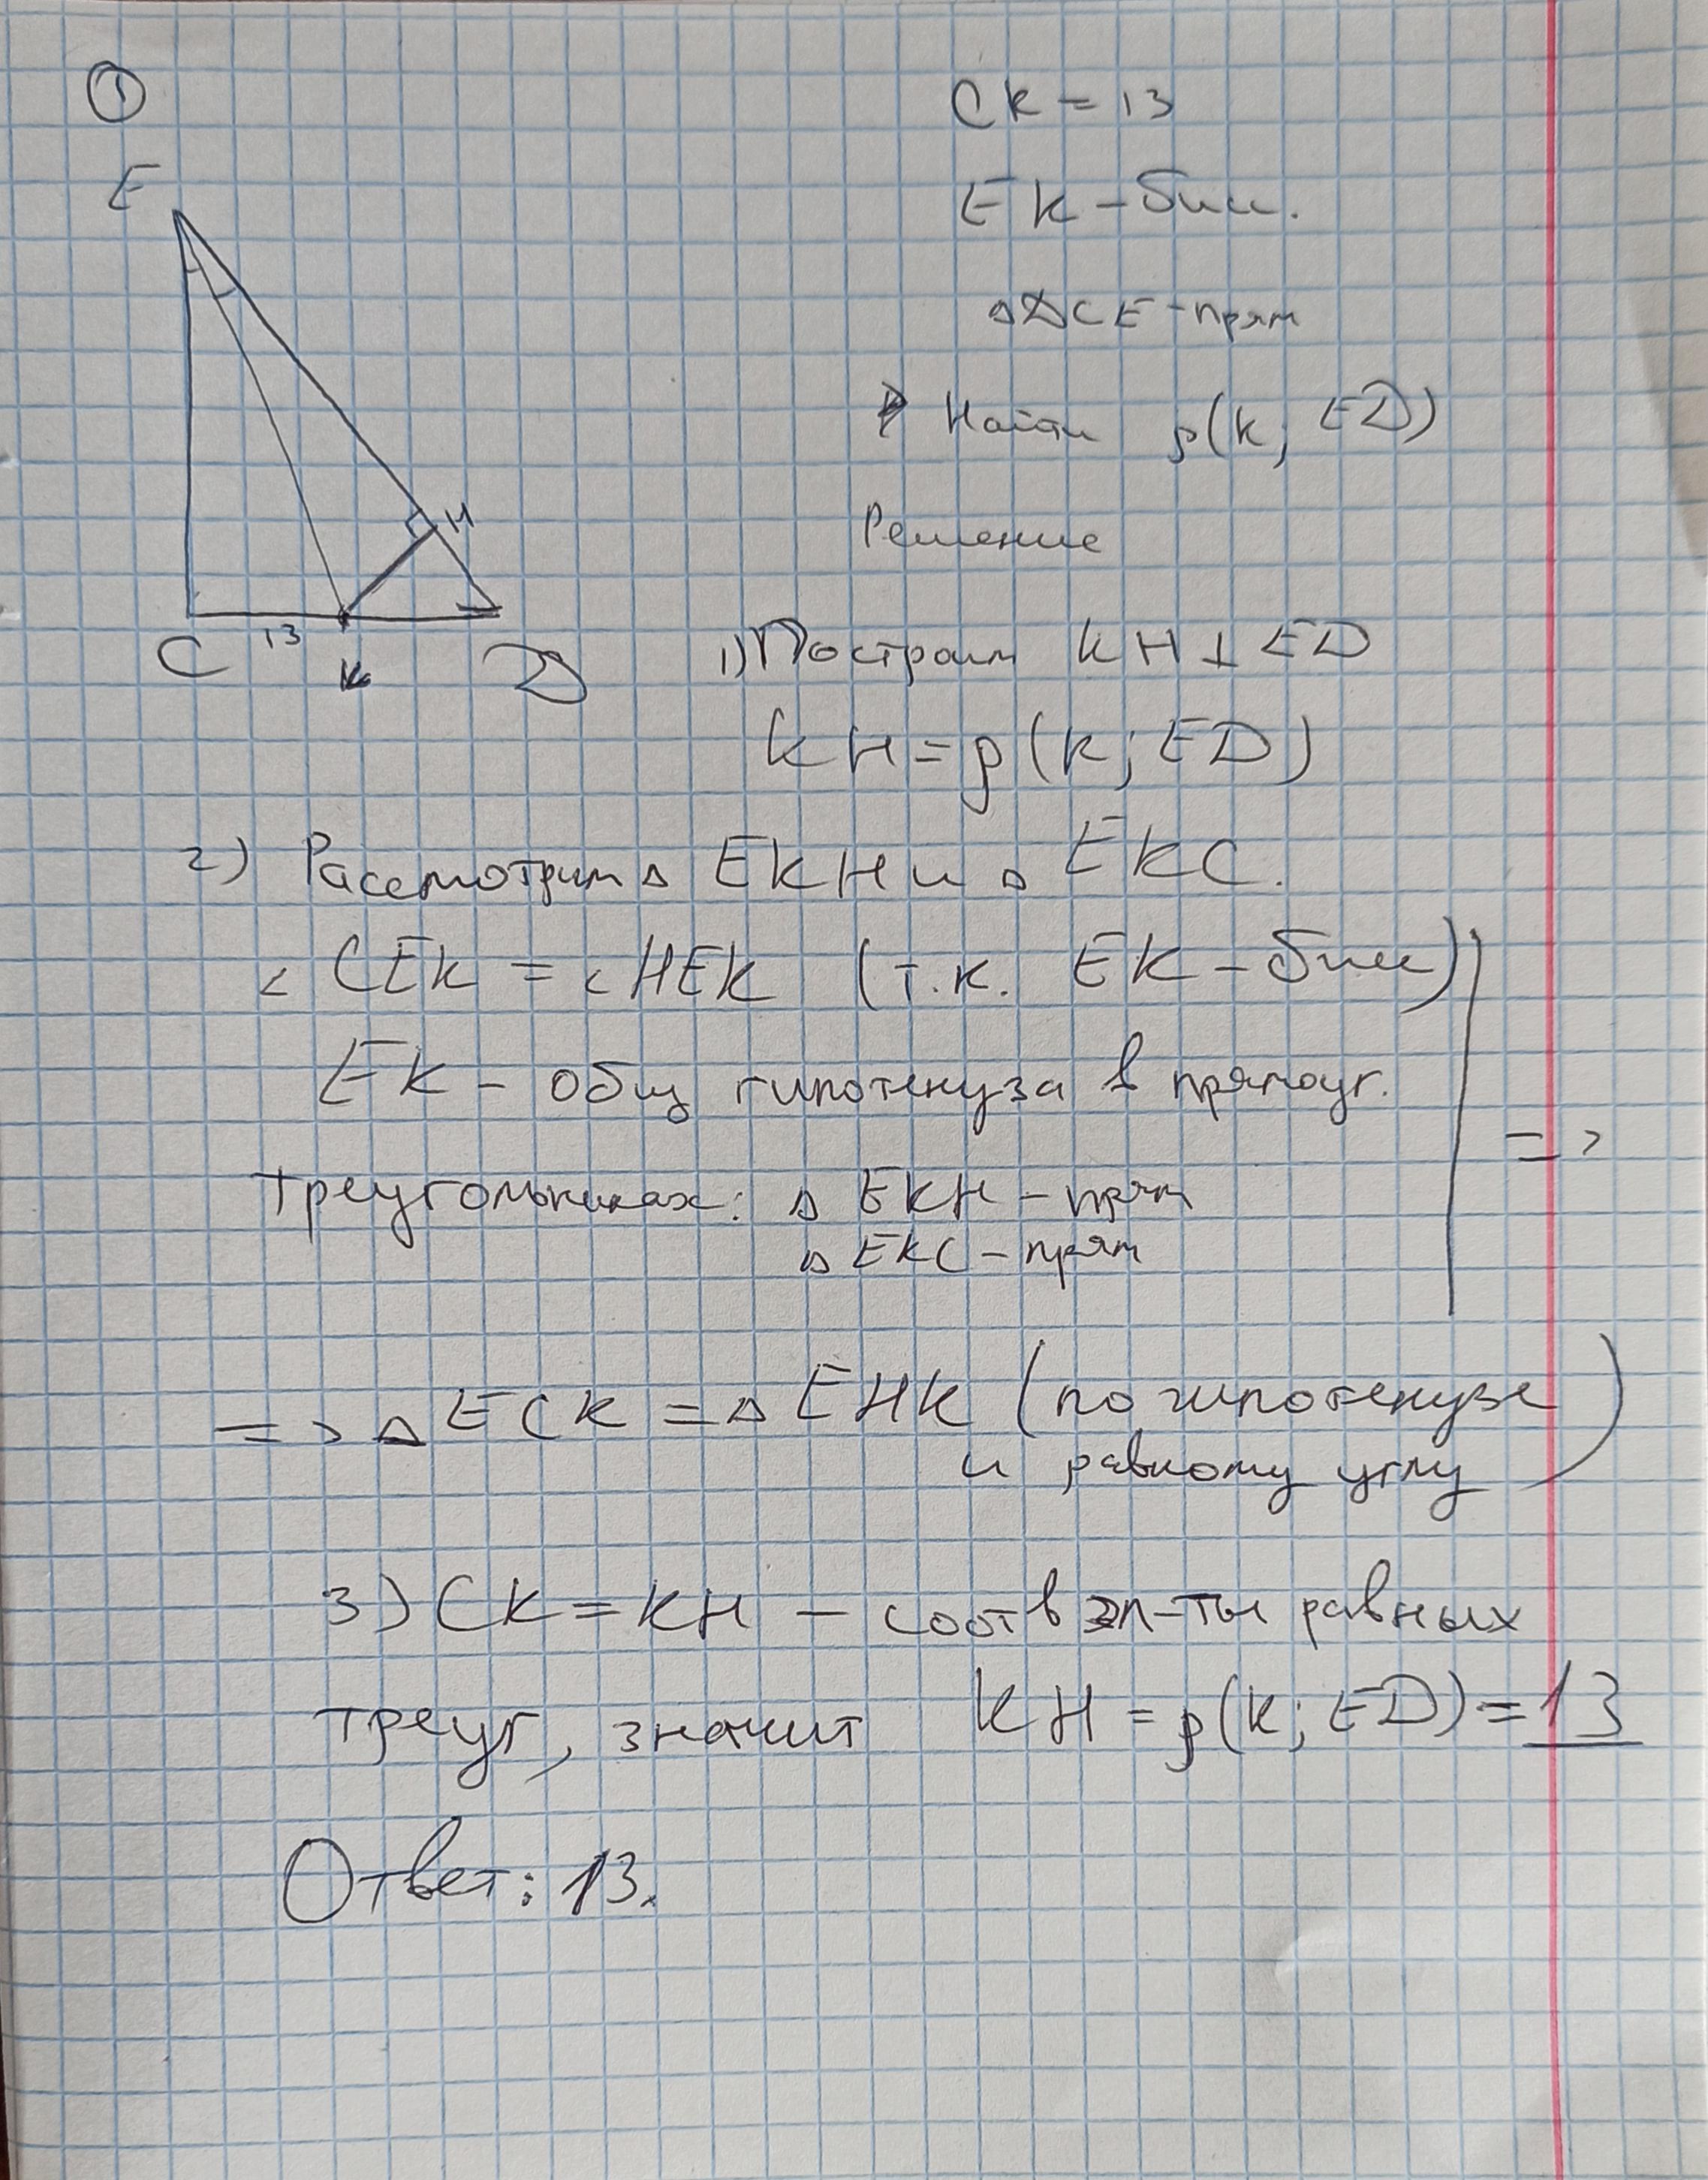 ①
CK = 13
E
EK - бисс.
△DCE - прям
Найти ρ(K; ED)
H
Решение
C 13 K D
1) Построим KH ⊥ ED
KH = ρ(K; ED)
2) Рассмотрим △ EKH и △ EKC.
∠ CEK = ∠ HEK (т.к. EK - бисс)
EK - общ гипотенуза в прямоуг.
=>
треугольниках: △ EKH - прям
△ EKC - прям
=> △ ECK = △ EHK (по гипотенузе
и равному углу)
3) CK = KH - соотв эл-ты равных
треуг, значит KH = ρ(K; ED) = 13
Ответ: 13.